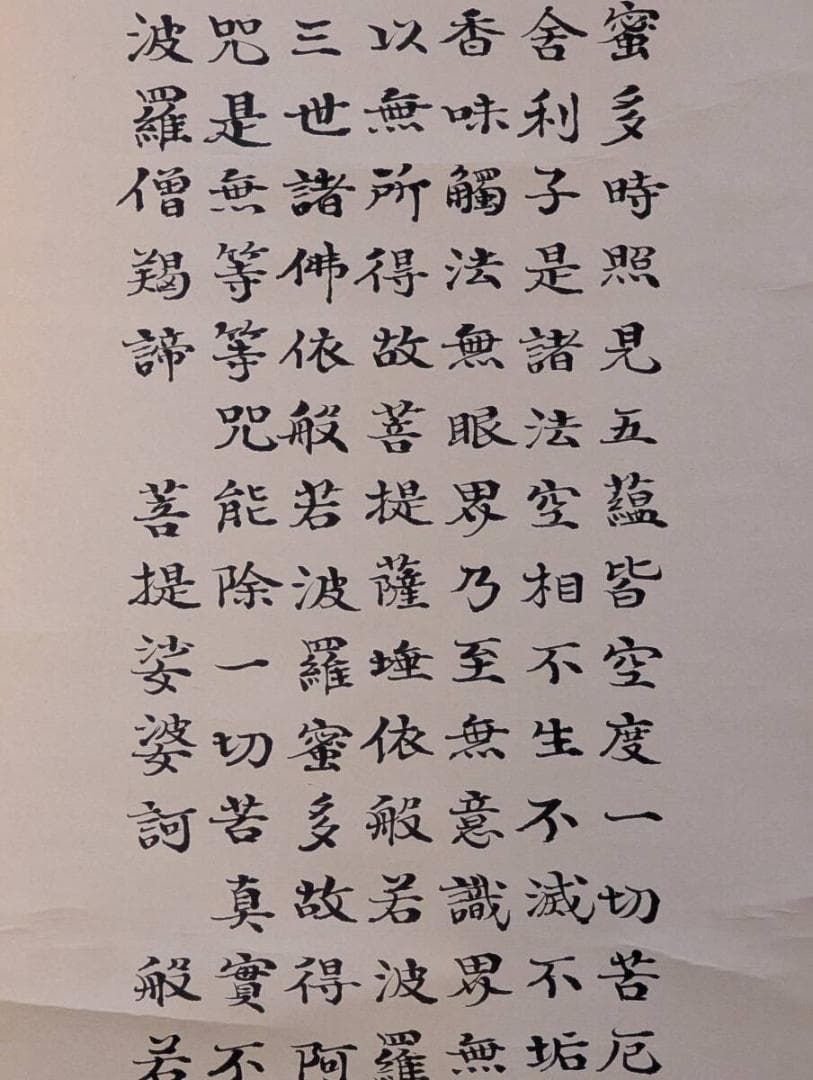 蜜多時照見五蘊皆空度一切苦厄
舍利子是諸法空相不生不滅不垢
香味觸法無眼界乃至無意識界無
以無所得故菩提薩埵依般若波羅
三世諸佛依般若波羅蜜多故得阿
咒是無等等咒能除一切苦真實不
波羅僧羯諦 菩提娑婆訶 般若